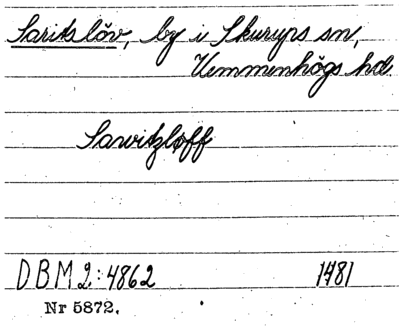 Saritslöv, by i Skurups sn,
Vemmenhögs hd.
Sawitzløff
DBM 2:4862 1481
Nr 5872.